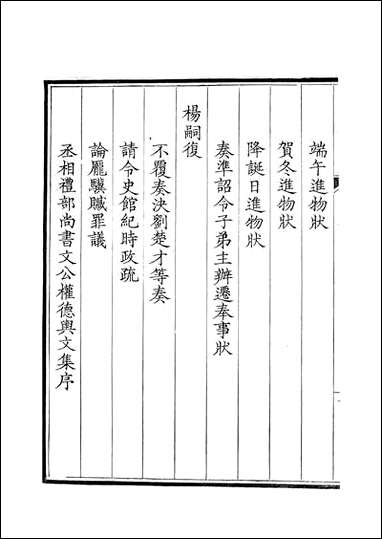 端午進物狀
賀冬進物狀
降誕日進物狀
奏準詔令子弟主辦遷奉事狀
楊嗣復
不覆奏決劉楚才等奏
請令史館紀時政疏
論龎驥贓罪議
丞相禮部尚書文公權德輿文集序